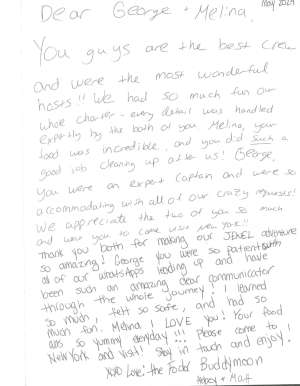 May 2024
Dear George + Melina,
You guys are the best crew
and were the most wonderful
hosts!! We had so much fun our
whole charter - every detail was handled
expertly by the both of you. Melina, your
food was incredible, and you did such a
good job cleaning up after us! George,
you were an expert Captain and were so
accommodating with all of our crazy requests!
We appreciate the two of you so much
and want you to come visit New York!!
Thank you both for making our JEKEL adventure
so amazing! George you were so patient with
all of our WhatsApps leading up and have
been such an amazing clear communicator
through the whole journey! I learned
so much, felt so safe, and had so
much fun. Melina I LOVE you! Your food
was so yummy everyday!!! Please come to
New York and visit! Stay in touch and enjoy!
XOXO Love: the Buddymoon
+ Matt